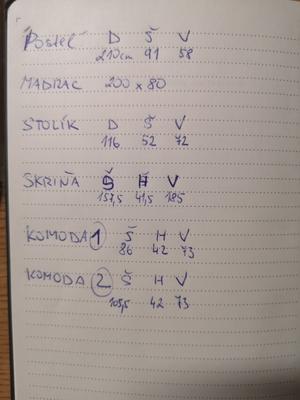 Posteľ D Š V
210cm 91 58
MADRAC 200 x 80
STOLÍK D Š V
116 52 72
SKRIŇA Š H V
157,5 41,5 185
KOMODA 1 Š H V
86 42 73
KOMODA 2 Š H V
105,5 42 73